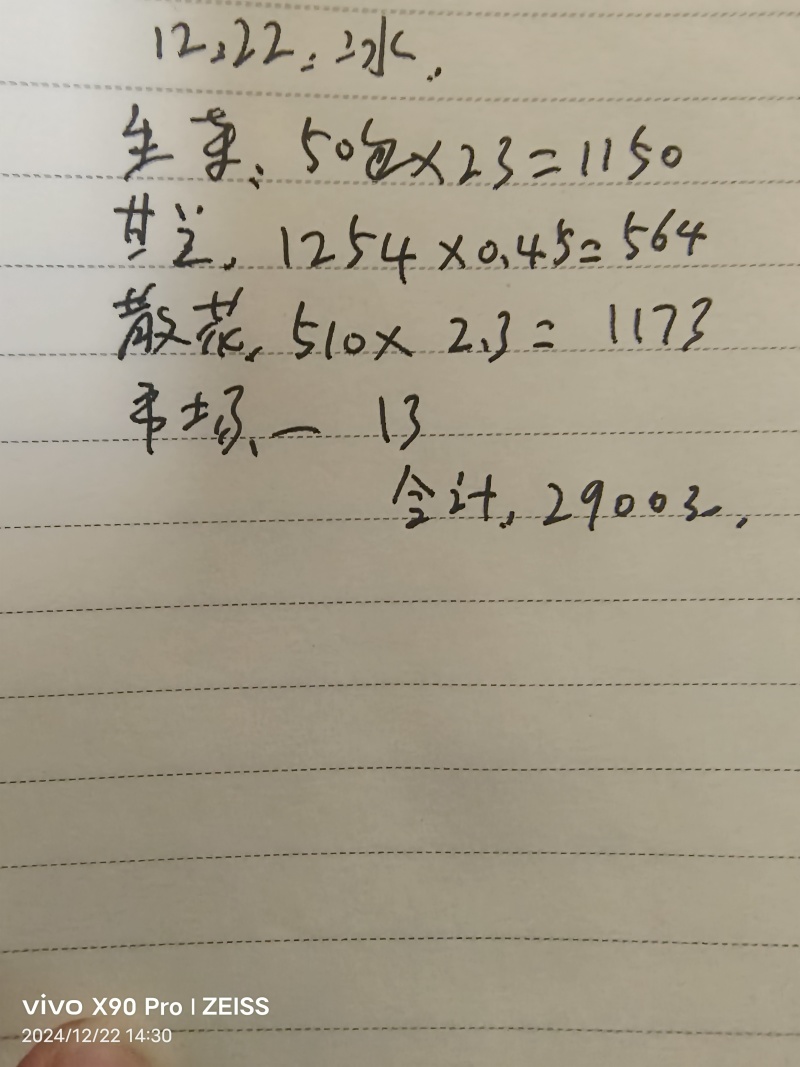 12.22. 三水.
生菜. 50包×23=1150
甘兰. 1254×0.45=564
散花. 510× 2.3= 1173
市场. — 13
合计. 2900元.
vivo X90 Pro | ZEISS
2024/12/22 14:30